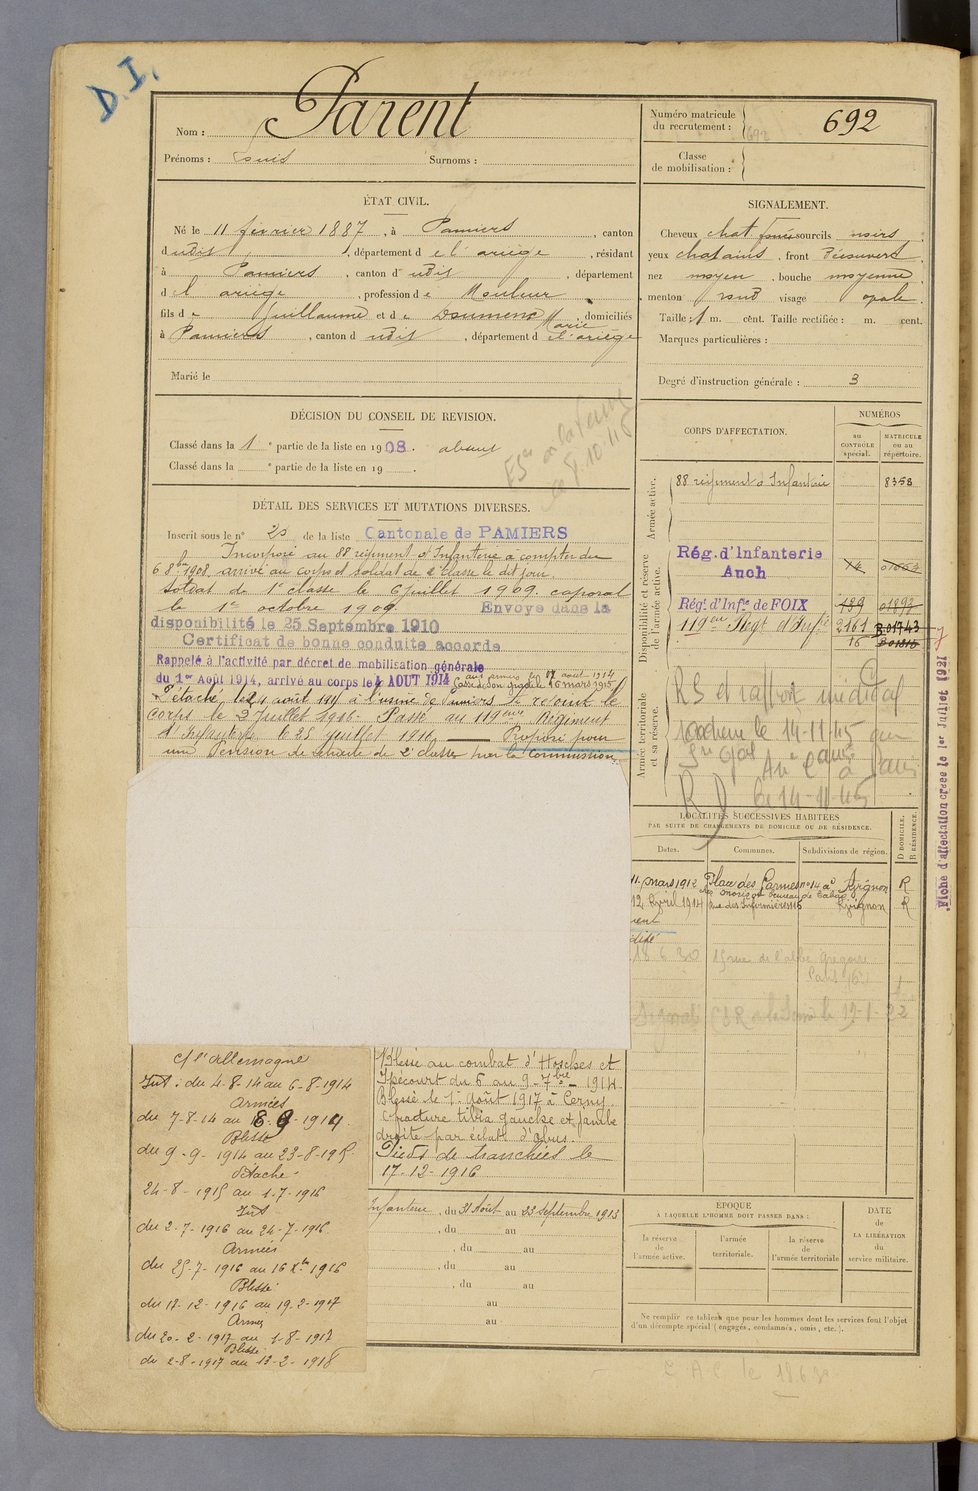 D.I.
Nom : Parent
Prénoms : Louis Surnoms :
Numéro matricule du recrutement : 692
692
Classe de mobilisation :
ÉTAT CIVIL.
Né le 11 février 1887, à Pamiers, canton
dudit, département de l'ariège, résidant
à Pamiers, canton dudit, département
d l'ariège, profession de Mouleur
fils de Guillaume et de Doumenc Marie, domiciliés
à Pamiers, canton dudit, département de l'ariège
Marié le
SIGNALEMENT.
Cheveux chat. foncé sourcils noirs,
yeux chatains, front découvert,
nez moyen, bouche moyenne,
menton rond visage opale.
Taille : 1 m. cent. Taille rectifiée : m. cent.
Marques particulières :
Degré d'instruction générale : 3
DÉCISION DU CONSEIL DE REVISION.
Classé dans la 1e partie de la liste en 1908. absent
Classé dans la e partie de la liste en 19 .
DÉTAIL DES SERVICES ET MUTATIONS DIVERSES.
Inscrit sous le n° 20 de la liste Cantonale de PAMIERS
Incorporé au 88 régiment d'Infanterie à compter du
6 8bre 1908, arrivé au corps et soldat de 2e classe le dit jour.
Soldat de 1e classe le 6 juillet 1909. caporal
le 1er octobre 1909. Envoyé dans la
disponibilité le 25 Septembre 1910
Certificat de bonne conduite accordé
Rappelé à l'activité par décret de mobilisation générale
du 1er Août 1914, arrivé au corps le 4 AOUT 1914
aux armées le 7 août 1914
16 mars 1915
Détaché le 24 août 1915 à l'usine de Pamiers. Se rejoint le
corps le 2 Juillet 1916. Passé au 119eme Régiment
d'Infanterie le 25 juillet 1916. Proposé pour
une pension de retraite de 2e classe par la commission
CORPS D'AFFECTATION.
NUMÉROS
au CONTRÔLE spécial.
MATRICULE ou au répertoire.
Armée active.
88 régiment d'Infanterie 8358
Disponibilité et réserve de l'armée active.
Rég. d'Infanterie Auch
Rég. d'Infie de FOIX
119eme Régt d'Infie 2161 R.01743
16
Armée territoriale et sa réserve.
RS et rapport médical
le 14-11-45
à Paris
14-11-45
Fiche d'affectation créée le 1er Juillet 1921
LOCALITÉS SUCCESSIVES HABITÉES
PAR SUITE DE CHANGEMENTS DE DOMICILE OU DE RÉSIDENCE.
Dates. Communes. Subdivisions de région. D DOMICILE. R RÉSIDENCE.
11 mars 1912 Place des Carmes n° 14 à Avignon R
12 Avril 1914 Rue des Infirmières 116 Avignon R
18.6.30 15 rue de l'abbé Grégoire
Paris
c/ l'Allemagne
Int : du 4-8-14 au 6-8-1914
Armées
du 7-8-14 au 8-9-1914
Blessé
du 9-9-1914 au 23-8-1915
Détaché
24-8-1915 au 1-7-1916
Int
du 2-7-1916 au 24-7-1916
Armées
du 25-7-1916 au 16 Xbre 1916
Blessé
du 17-12-1916 au 19-2-1917
Armées
du 20-2-1917 au 1-8-1917
Blessé
du 2-8-1917 au 13-2-1918
Blessé au combat d'Hosches et
Ipécourt du 6 au 9-7bre-1914.
Blessé le 1er août 1917 à Cerny.
fracture tibia gauche et jambe
droite par éclats d'obus.
Pieds de tranchées le
17-12-1916
Infanterie, du 31 Août au 23 Septembre 1913
, du au
, du au
, du au
, du au
au
au
EPOQUE
A LAQUELLE L'HOMME DOIT PASSER DANS :
la réserve de l'armée active.
l'armée territoriale.
la réserve de l'armée territoriale
DATE de LA LIBÉRATION du service militaire.
Ne remplir ce tableau que pour les hommes dont les services font l'objet
d'un décompte spécial (engagés, condamnés, omis, etc.).